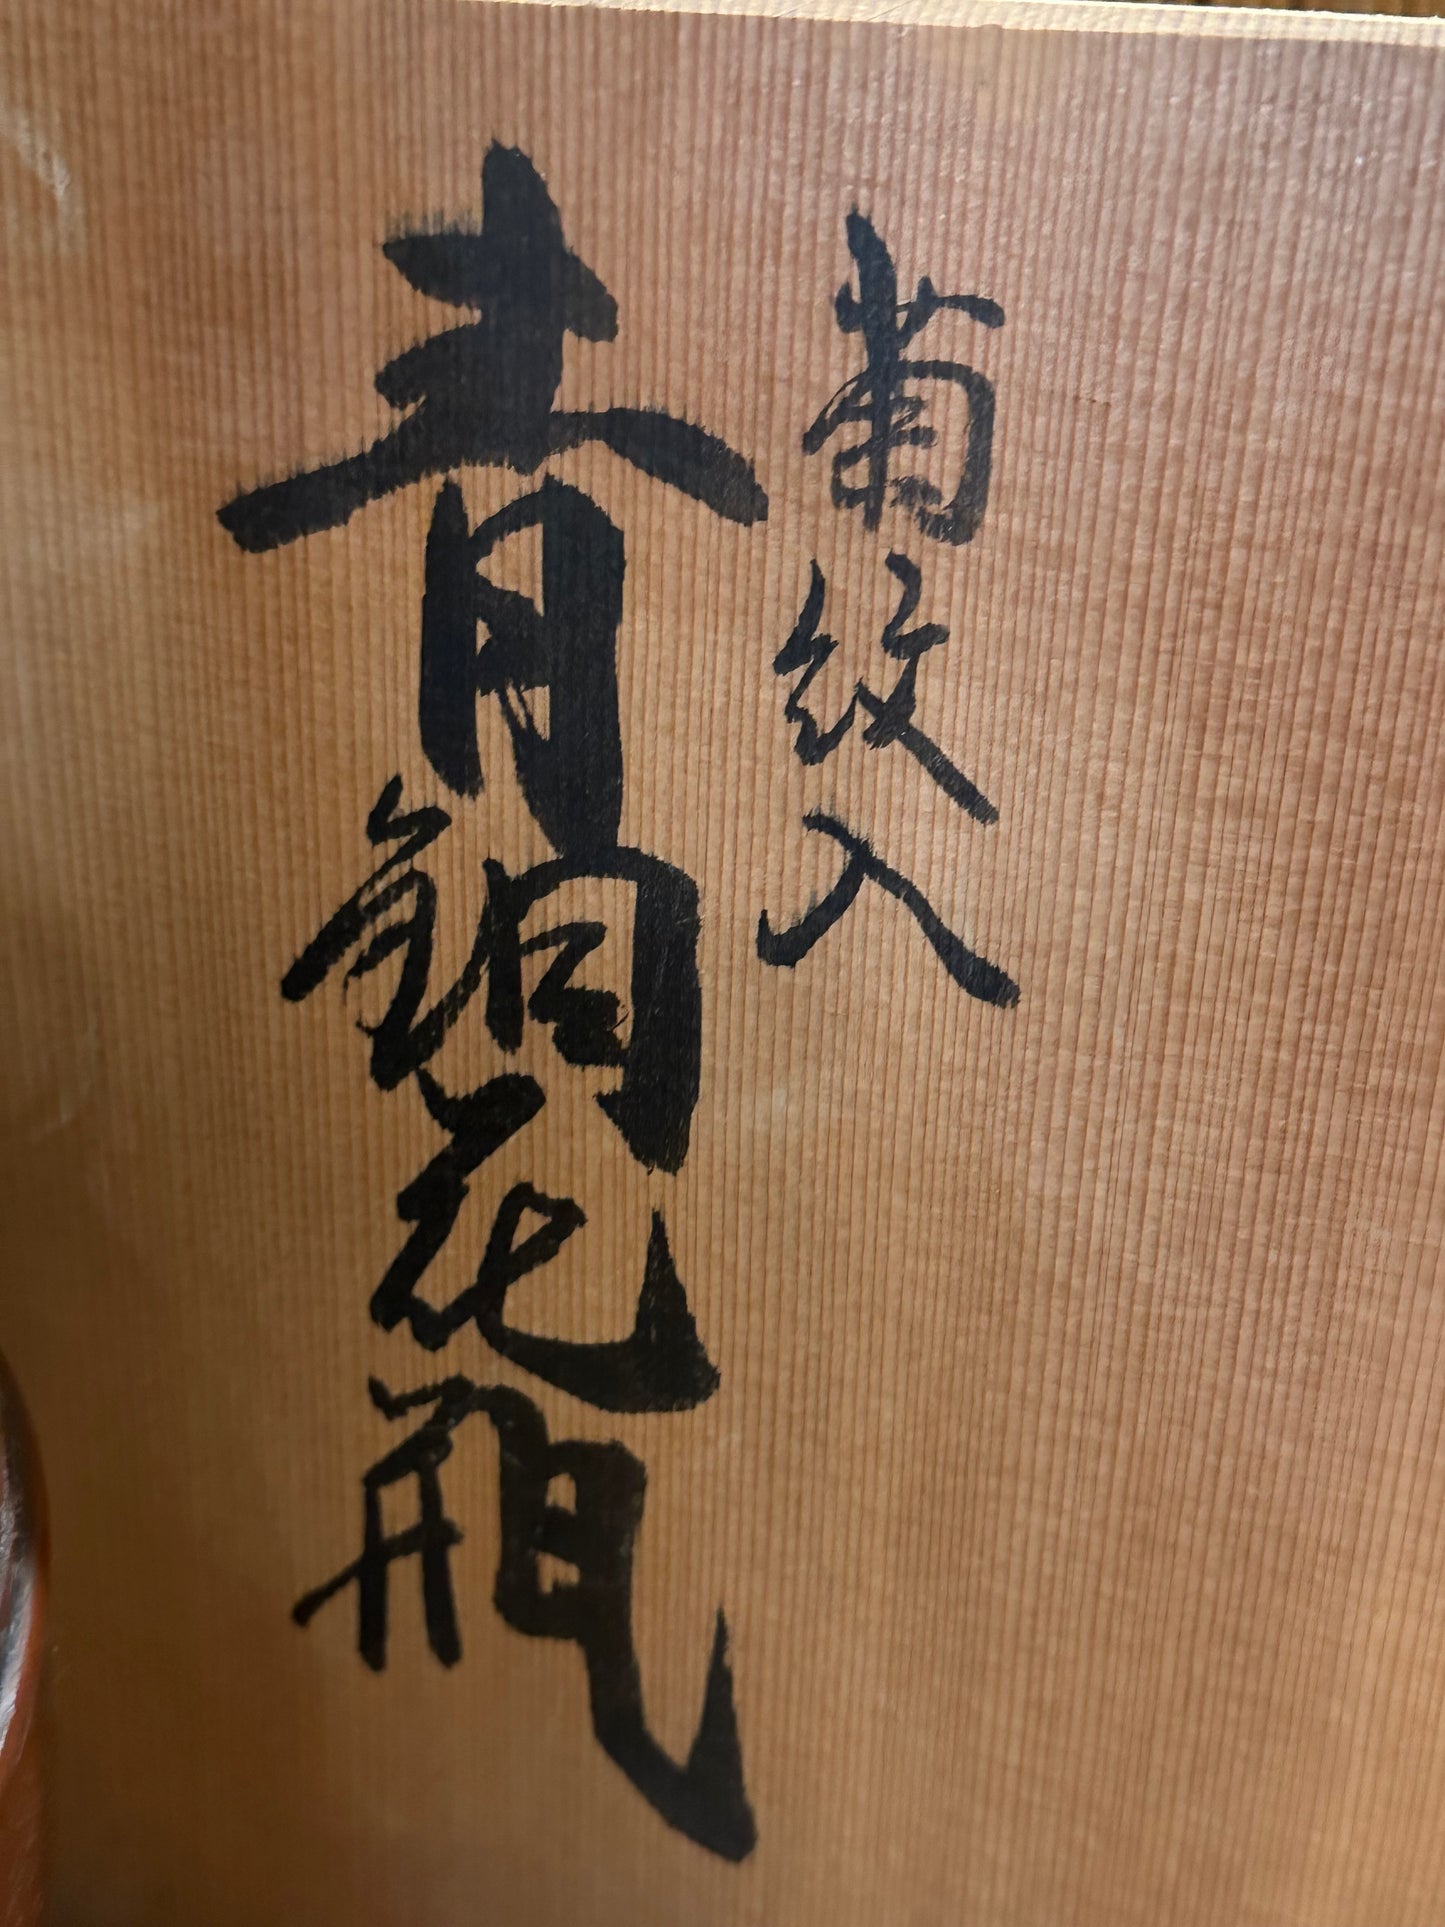 菊紋入
青銅花瓶